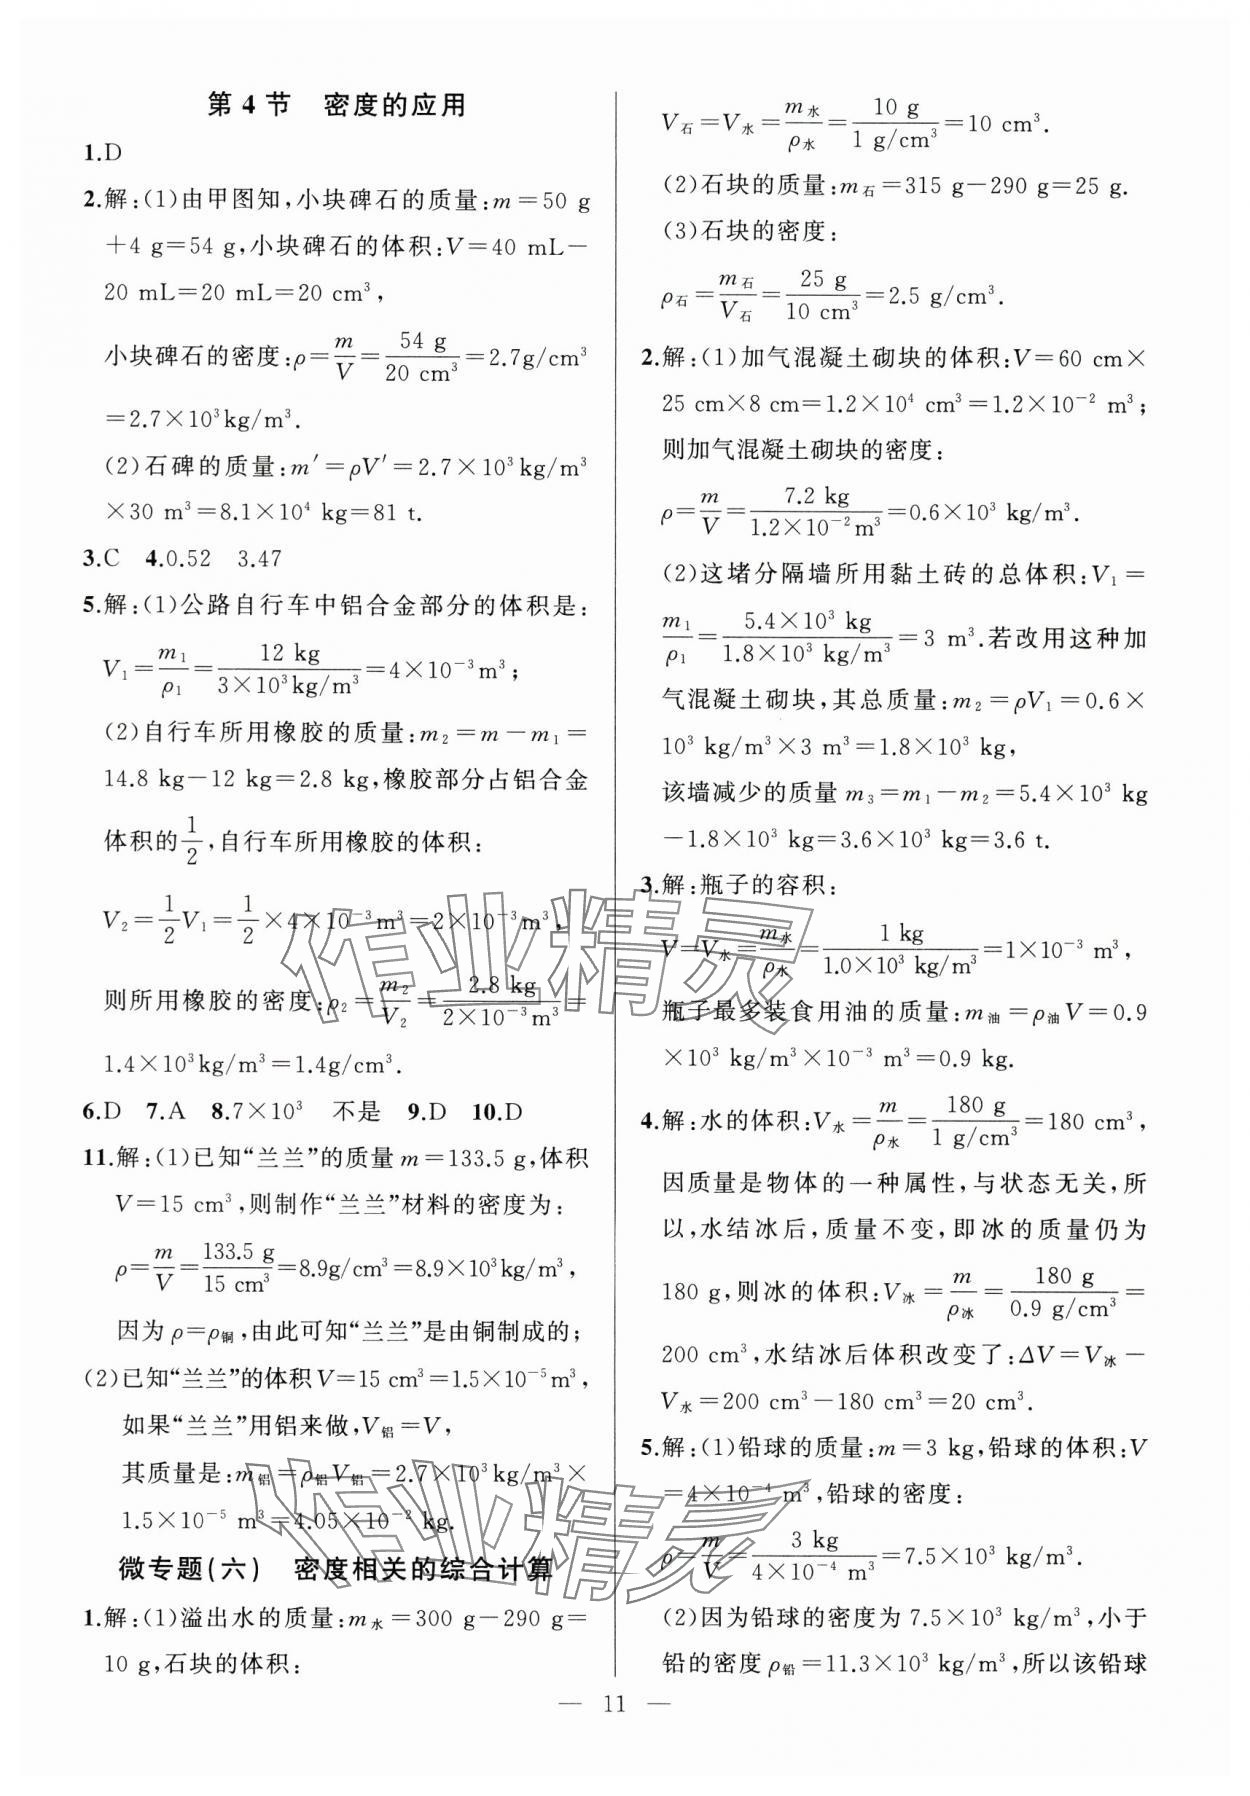 第 4 节　密度的应用
1.D
2.解:(1)由甲图知,小块碑石的质量:m=50 g
+4 g=54 g,小块碑石的体积:V=40 mL-
20 mL=20 mL=20 cm³,
小块碑石的密度:ρ=m/V=54 g/20 cm³=2.7g/cm³
=2.7×10³kg/m³.
(2)石碑的质量:m′=ρV′=2.7×10³kg/m³
×30 m³=8.1×10⁴ kg=81 t.
3.C　4.0.52　3.47
5.解:(1)公路自行车中铝合金部分的体积是:
V₁=m₁/ρ₁=12 kg/3×10³kg/m³=4×10⁻³m³;
(2)自行车所用橡胶的质量:m₂=m-m₁=
14.8 kg-12 kg=2.8 kg,橡胶部分占铝合金
体积的1/2,自行车所用橡胶的体积:
V₂=1/2V₁=1/2×4×10⁻³m³=2×10⁻³m³,
则所用橡胶的密度:ρ₂=m₂/V₂=2.8 kg/2×10⁻³m³=
1.4×10³kg/m³=1.4g/cm³.
6.D　7.A　8.7×10³　不是　9.D　10.D
11.解:(1)已知“兰兰”的质量m=133.5 g,体积
V=15 cm³,则制作“兰兰”材料的密度为:
ρ=m/V=133.5 g/15 cm³=8.9g/cm³=8.9×10³kg/m³,
因为ρ=ρ铜,由此可知“兰兰”是由铜制成的;
(2)已知“兰兰”的体积V=15 cm³=1.5×10⁻⁵m³,
如果“兰兰”用铝来做,V铝=V,
其质量是:m铝=ρ铝V铝=2.7×10³kg/m³×
1.5×10⁻⁵ m³=4.05×10⁻² kg.
微专题(六)　密度相关的综合计算
1.解:(1)溢出水的质量:m水=300 g-290 g=
10 g,石块的体积:
V石=V水=m水/ρ水=10 g/1 g/cm³=10 cm³.
(2)石块的质量:m石=315 g-290 g=25 g.
(3)石块的密度:
ρ石=m石/V石=25 g/10 cm³=2.5 g/cm³.
2.解:(1)加气混凝土砌块的体积:V=60 cm×
25 cm×8 cm=1.2×10⁴ cm³=1.2×10⁻² m³;
则加气混凝土砌块的密度:
ρ=m/V=7.2 kg/1.2×10⁻²m³=0.6×10³ kg/m³.
(2)这堵分隔墙所用黏土砖的总体积:V₁=
m₁/ρ₁=5.4×10³ kg/1.8×10³ kg/m³=3 m³.若改用这种加
气混凝土砌块,其总质量:m₂=ρV₁=0.6×
10³ kg/m³×3 m³=1.8×10³ kg,
该墙减少的质量m₃=m₁-m₂=5.4×10³ kg
-1.8×10³ kg=3.6×10³ kg=3.6 t.
3.解:瓶子的容积:
V=V水=m水/ρ水=1 kg/1.0×10³ kg/m³=1×10⁻³ m³,
瓶子最多装食用油的质量:m油=ρ油V=0.9
×10³ kg/m³×10⁻³ m³=0.9 kg.
4.解:水的体积:V水=m/ρ水=180 g/1 g/cm³=180 cm³,
因质量是物体的一种属性,与状态无关,所
以,水结冰后,质量不变,即冰的质量仍为
180 g,则冰的体积:V冰=m/ρ冰=180 g/0.9 g/cm³=
200 cm³,水结冰后体积改变了:ΔV=V冰-
V水=200 cm³-180 cm³=20 cm³.
5.解:(1)铅球的质量:m=3 kg,铅球的体积:V
=4×10⁻⁴ m³,铅球的密度:
ρ=m/V=3 kg/4×10⁻⁴ m³=7.5×10³ kg/m³.
(2)因为铅球的密度为7.5×10³ kg/m³,小于
铅的密度ρ铅=11.3×10³ kg/m³,所以该铅球
— 11 —
作业精灵
作业精灵